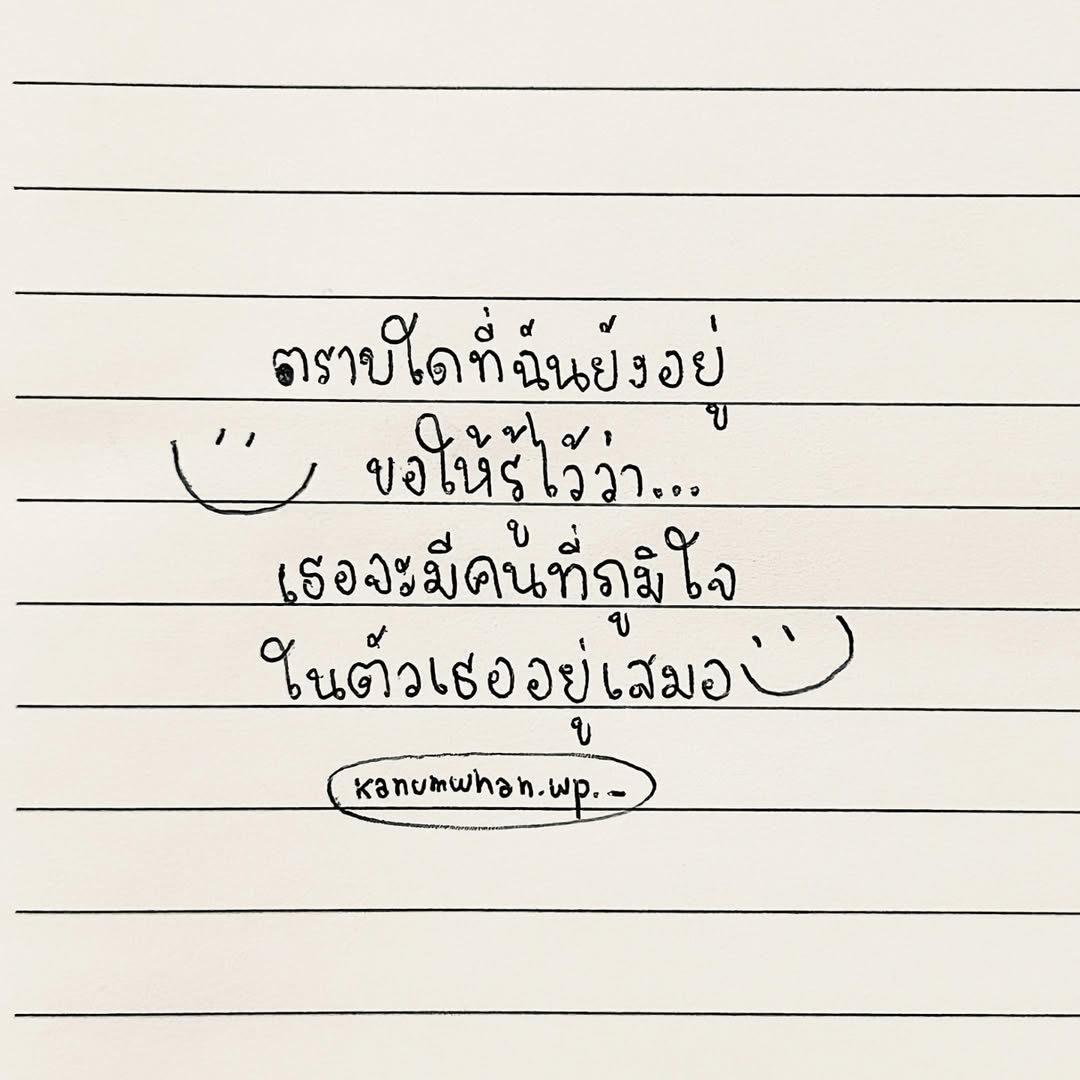 ตราบใดที่ฉันยังอยู่
ขอให้รู้ไว้ว่า...
เธอจะมีคนที่ภูมิใจ
ในตัวเธออยู่เสมอ
kanumwhan.wp.-